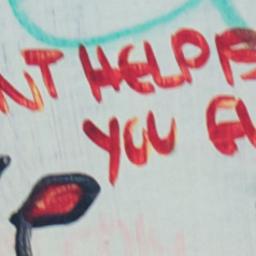 NT HELP
YOU